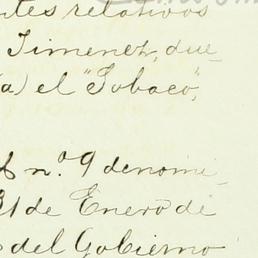 ntes relativos
Jimenez, due-
(a) el "Tobaco",
nº 9 denomi-
31 de Enero de
del Gobierno